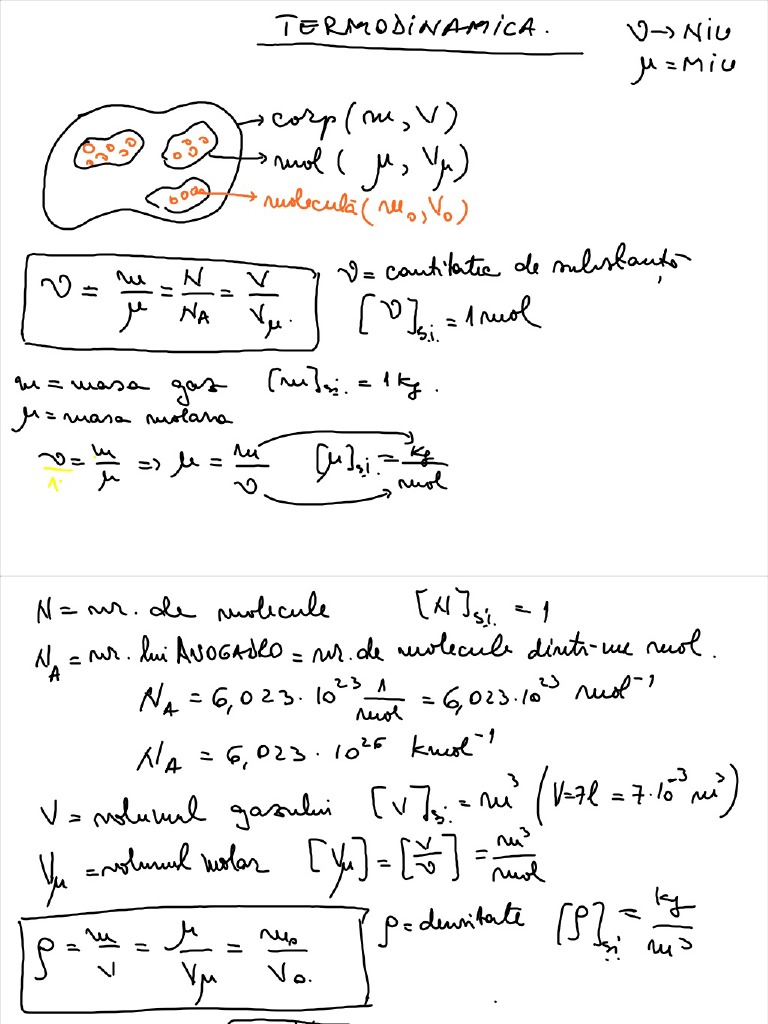 TERMODINAMICA.
ν → Niu
μ = Miu
corp (m, V)
mol (μ, Vμ)
moleculă (m₀, V₀)
ν = m/μ = N/NA = V/Vμ.
ν = cantitatea de substanță
[ν]s.i. = 1 mol
m = masa gaz [m]s.i. = 1 kg.
μ = masa molara
ν/1 = m/μ => μ = m/ν [μ]s.i. = kg/mol
N = nr. de molecule [N]s.i. = 1
NA = nr. lui AVOGADRO = nr. de molecule dintr-un mol.
NA = 6,023·10²³ 1/mol = 6,023·10²³ mol⁻¹
NA = 6,023·10²⁶ kmol⁻¹
V = volumul gazului [V]s.i. = m³ (V=7l = 7·10⁻³ m³)
Vμ = volumul molar [Vμ] = [V/ν] = m³/mol
ρ = m/V = μ/Vμ = m₀/V₀.
ρ = densitate [ρ]s.i. = kg/m³